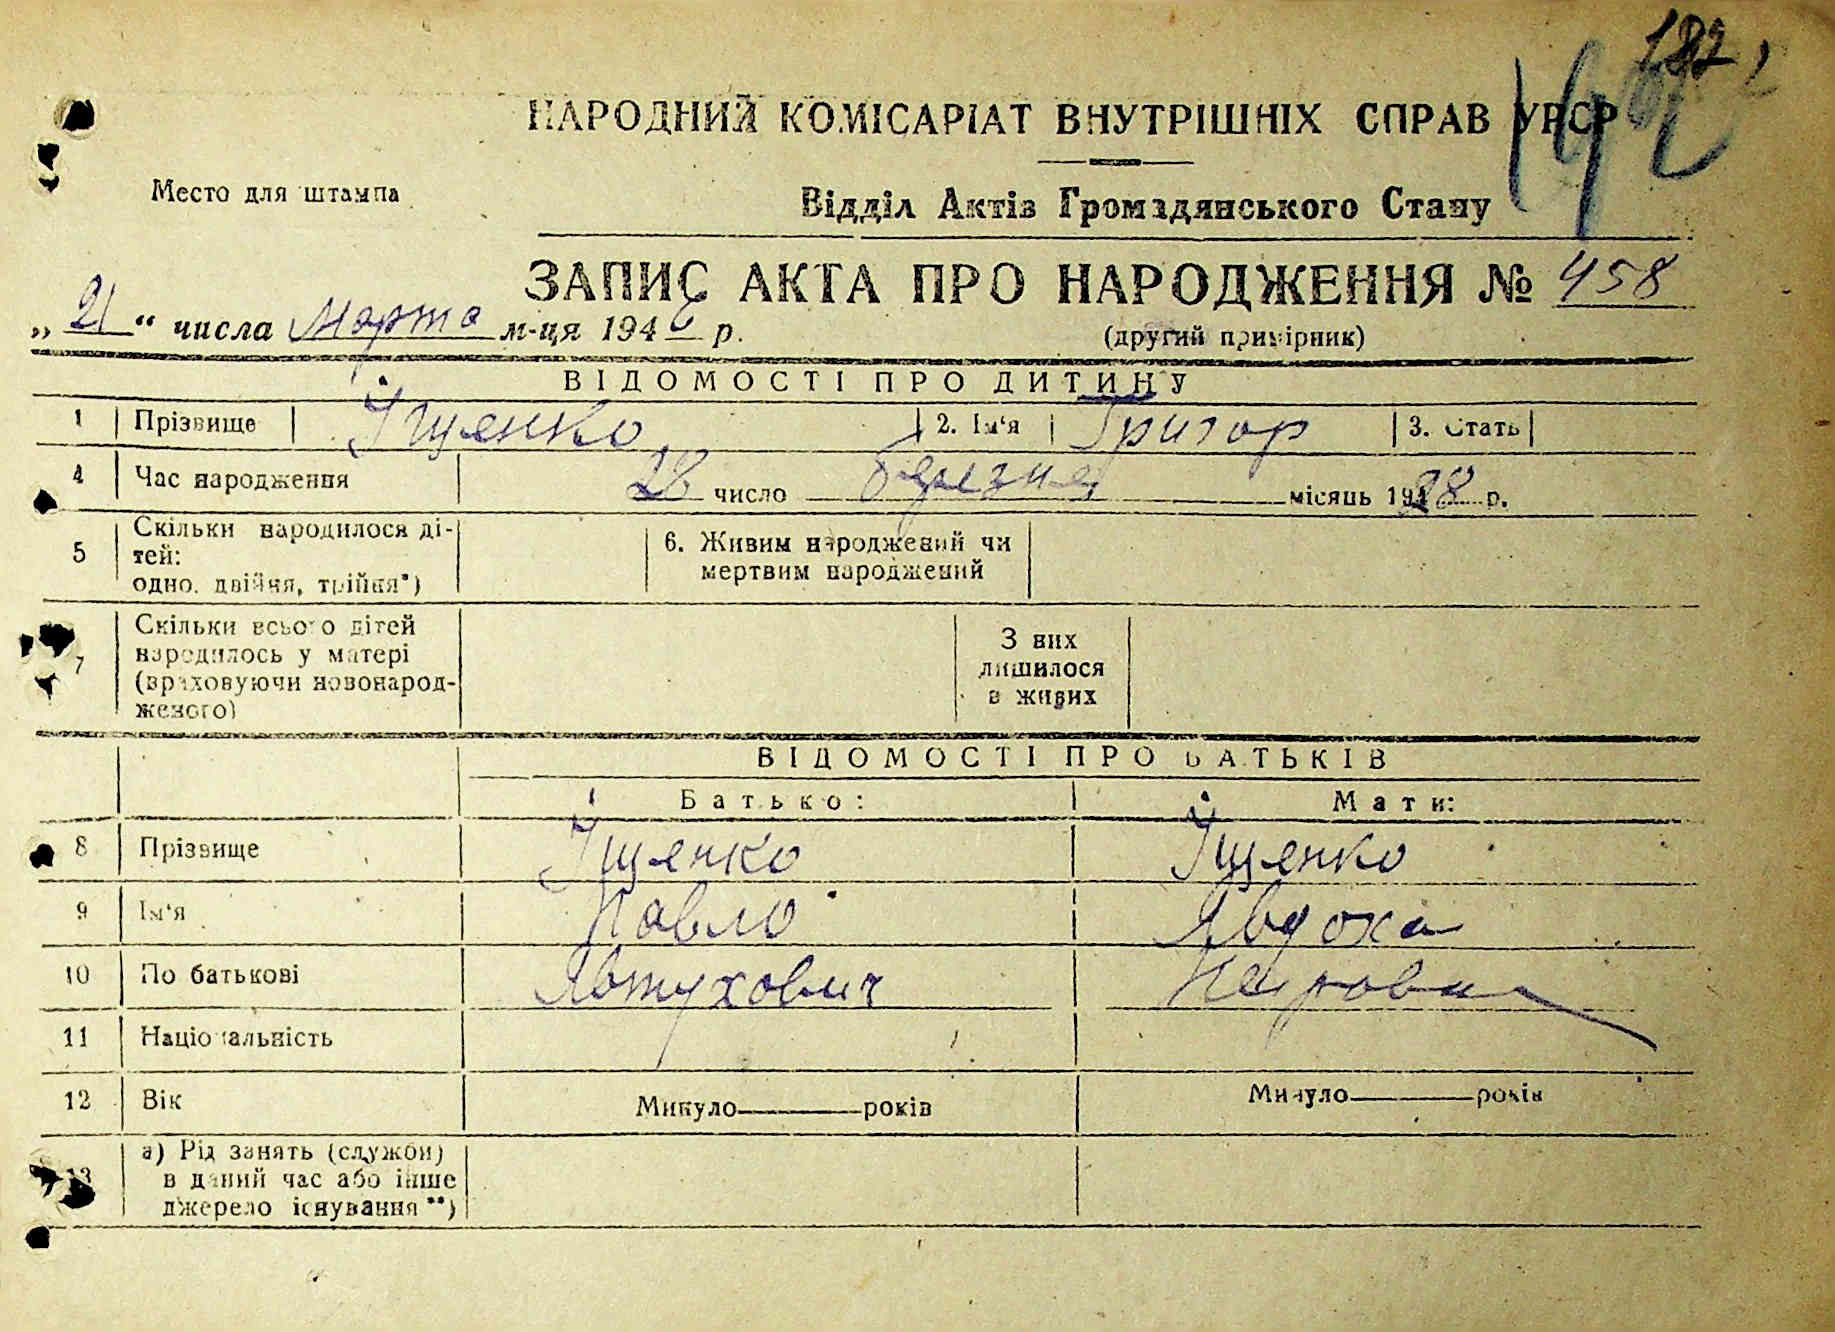 182
НАРОДНИЙ КОМІСАРІАТ ВНУТРІШНІХ СПРАВ УРСР
Место для штампа
Відділ Актів Громадянського Стану
ЗАПИС АКТА ПРО НАРОДЖЕННЯ № 458
„21“ числа Марта м-ця 1946 р.
(другий примірник)
ВІДОМОСТІ ПРО ДИТИНУ
1 Прізвище Іщенко 2. Ім'я Григор 3. Стать
4 Час народження 28 число березня місяць 1938 р.
5 Скільки народилося ді-
тей:
одно, двійня, трійня*)
6. Живим народжений чи
мертвим народжений
7 Скільки всього дітей
народилось у матері
(враховуючи новонарод-
женого)
З них
лишилося
в живих
ВІДОМОСТІ ПРО БАТЬКІВ
Батько: Мати:
8 Прізвище Іщенко Іщенко
9 Ім'я Павло Явдоха
10 По батькові Явтухович Петровна
11 Національність
12 Вік Минуло ролів Минуло років
13 а) Рід занять (служби)
в даний час або інше
джерело існування**)